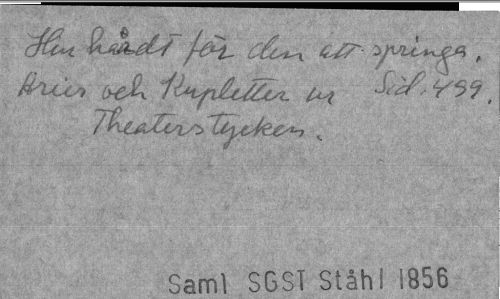 Hur hårdt för den att springa.
Arier och Kupletter ur Sid. 499.
Theaterstycken.
Saml SGST Ståhl 1856